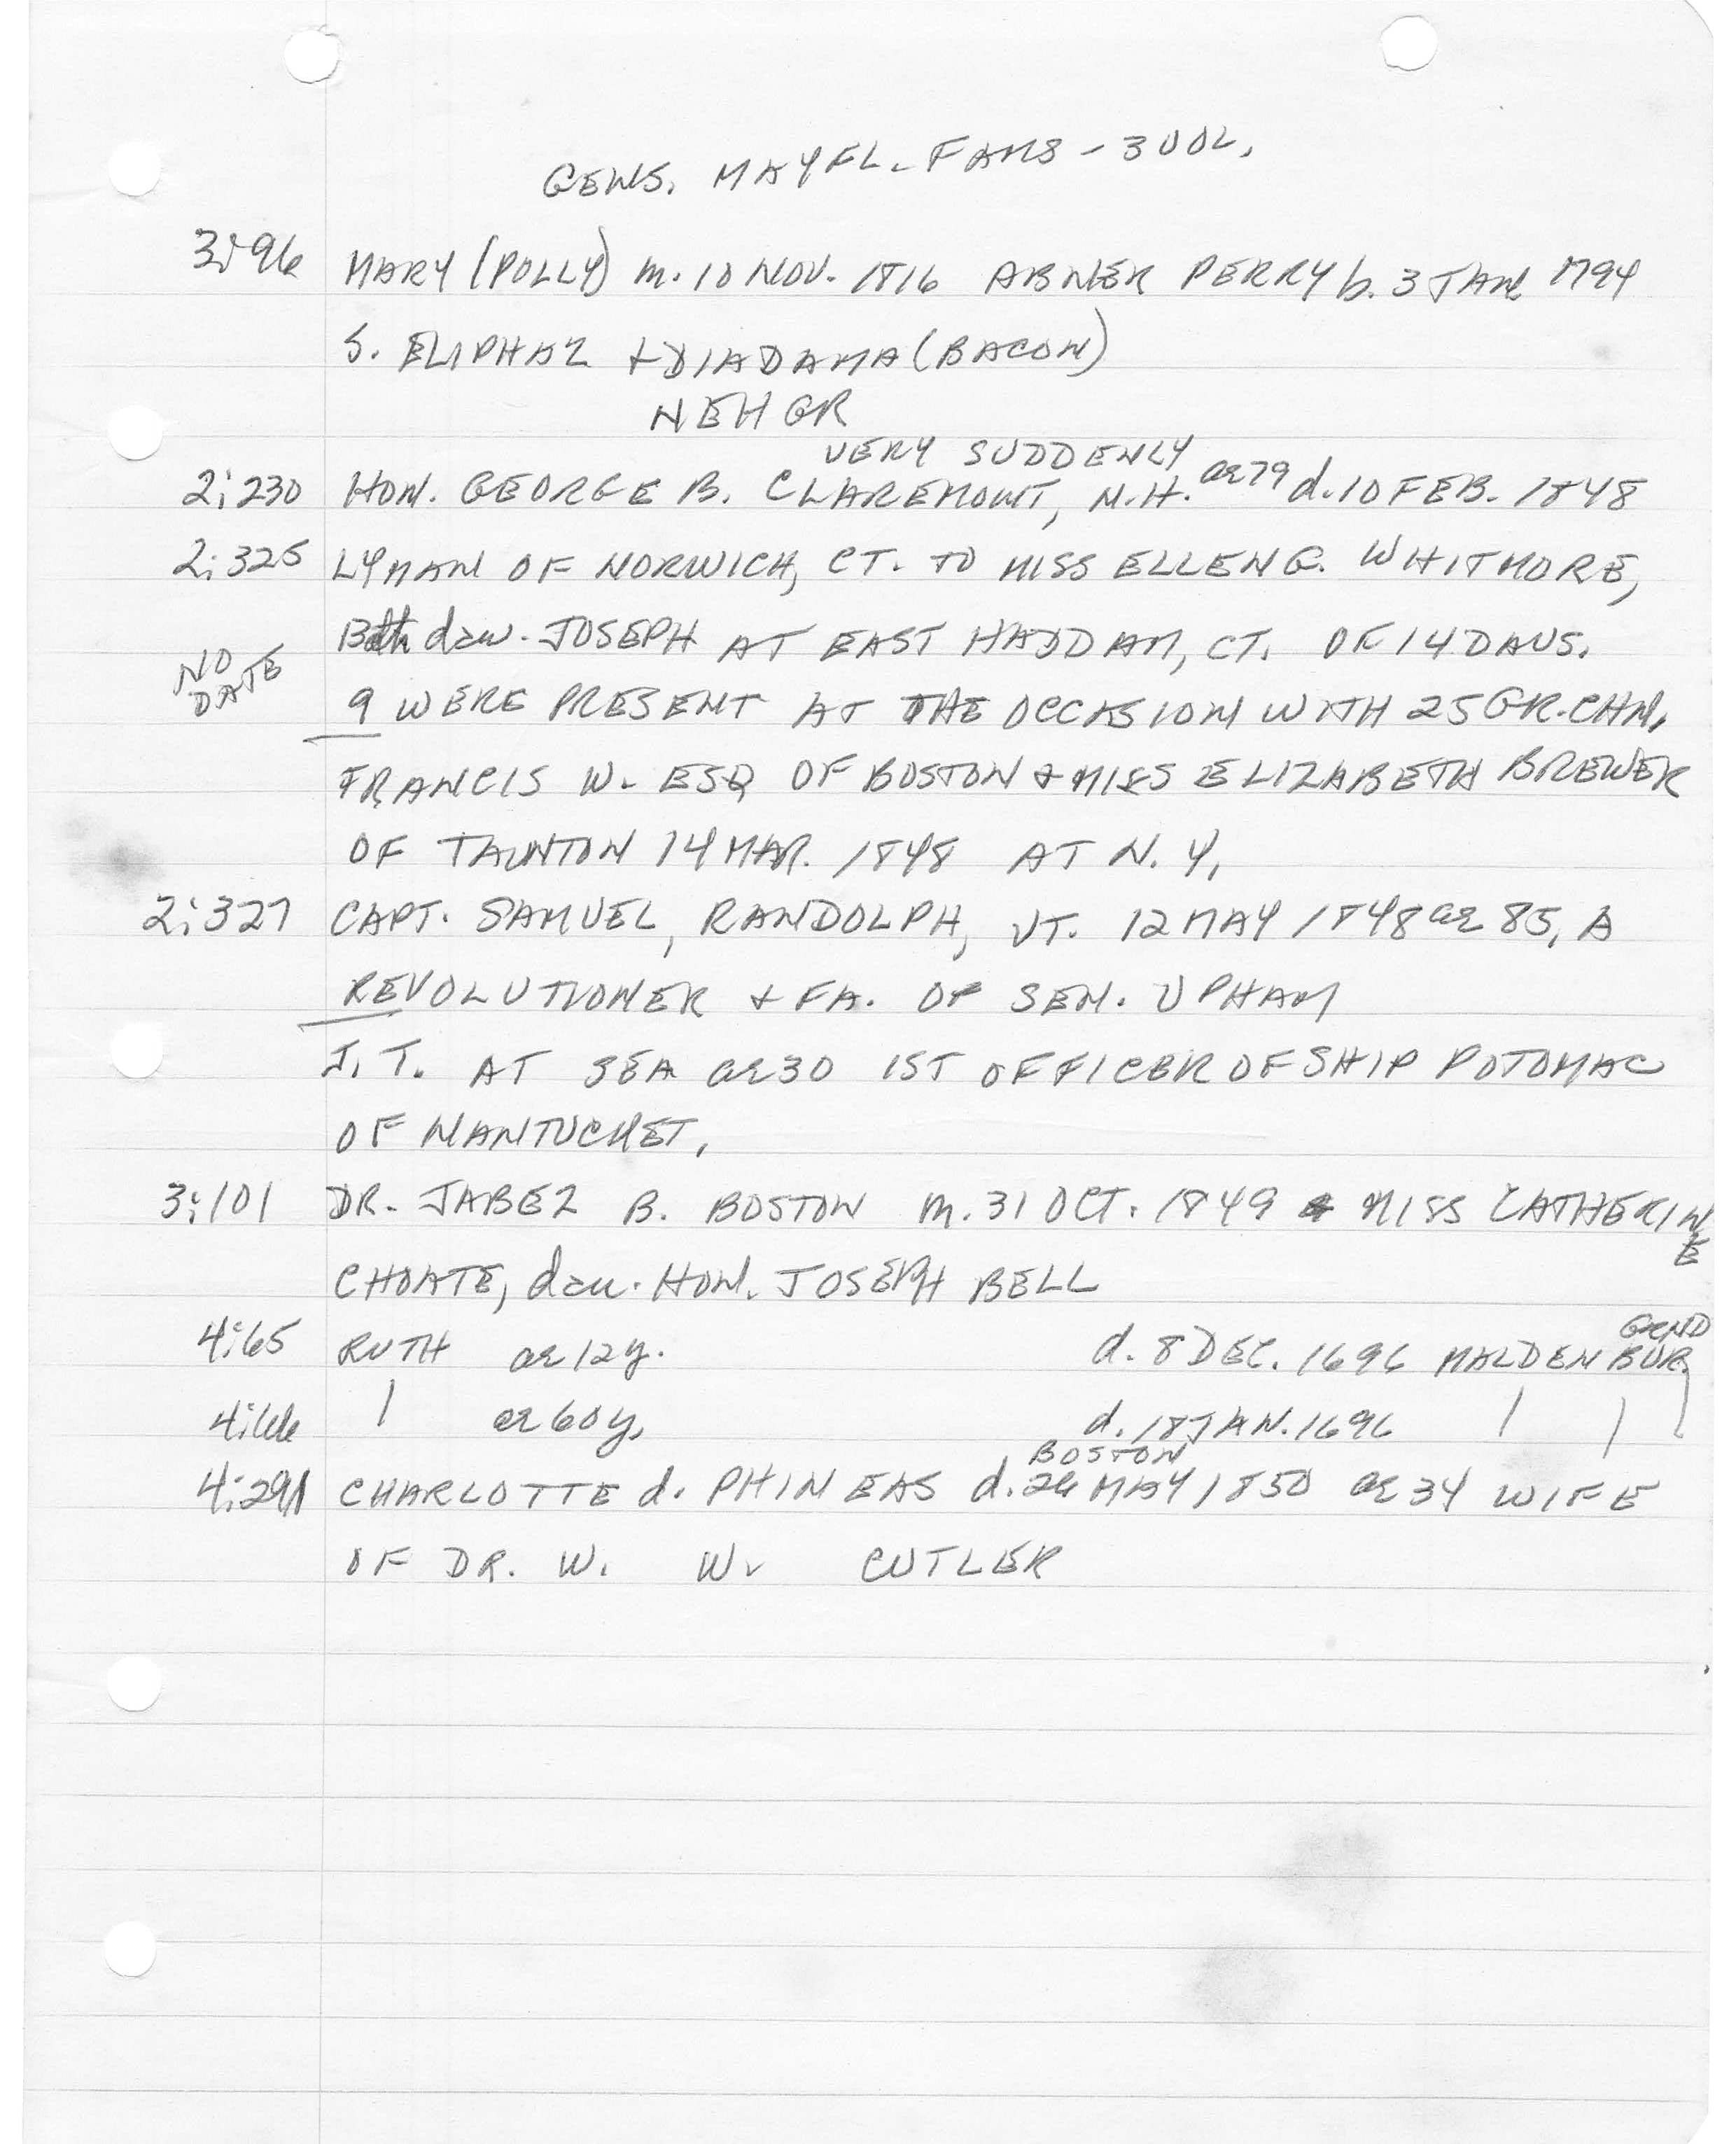 GENS. MAYFL. FAMS - 3 VOL.
3:96 MARY (POLLY) m. 10 NOV. 1816 ABNER PERRY b. 3 JAN 1794
S. ELIPHAZ + DIADAMA (BACON)
NEHGR
VERY SUDDENLY
2:230 HON. GEORGE B. CLAREMONT, N.H. ae 79 d. 10 FEB. 1848
2:325 LYMAN OF NORWICH, CT. TO MISS ELLEN G. WHITMORE,
13th dau. JOSEPH AT EAST HADDAM, CT. OF 14 DAUS.
NO DATE
9 WERE PRESENT AT THE OCCASION WITH 25 GR. CHN.
FRANCIS W. ESQ OF BOSTON + MISS ELIZABETH BREWER
OF TAUNTON 14 MAR. 1848 AT N. Y.
2:327 CAPT. SAMUEL, RANDOLPH, VT. 12 MAY 1848 ae 85, A
REVOLUTIONER + FA. OF SEN. UPHAM
J. T. AT SEA ae 30 1ST OFFICER OF SHIP POTOMAC
OF NANTUCKET,
3:101 DR. JABEZ B. BOSTON m. 31 OCT. 1849 MISS CATHERINE
CHOATE, dau. HON. JOSEPH BELL
4:65 RUTH ae 12 y. d. 8 DEC. 1696 MALDEN BUR. GRND
4:66 | ae 60 y. d. 18 JAN. 1696 | |
BOSTON
4:291 CHARLOTTE d. PHINEAS d. 26 MAY 1850 ae 34 WIFE
OF DR. W. W. CUTLER